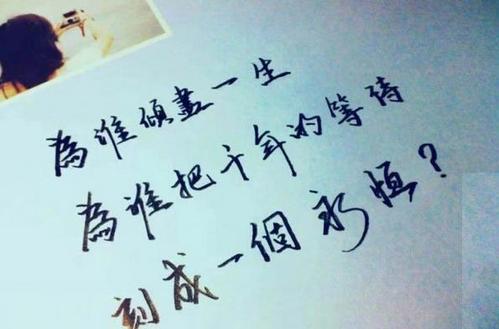 為誰傾盡一生
為誰把千年的等待
刻成一個永恆？